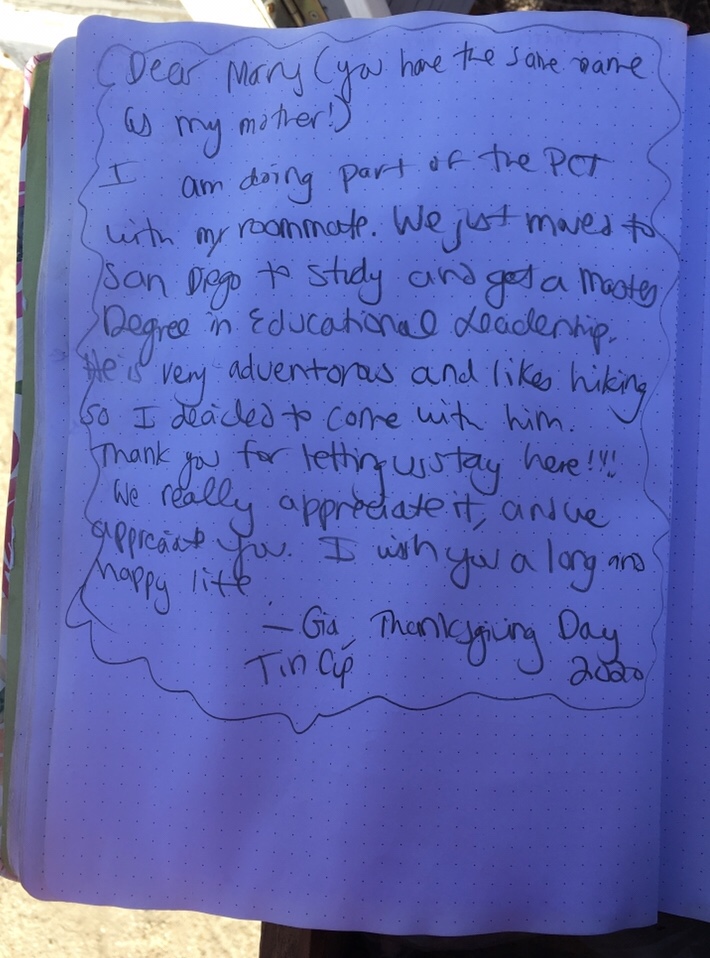 Dear Mary (you have the same name
as my mother!)
I am doing part of the PCT
with my roommate. We just moved to
San Diego to study and get a Master
Degree in Educational Leadership.
He is very adventorous and likes hiking
so I decided to come with him.
Thank you for letting us stay here!!!
We really appreciate it, and we
appreciate you. I wish you a long and
happy life
— Gia, Thanksgiving Day
Tin Cup 2020